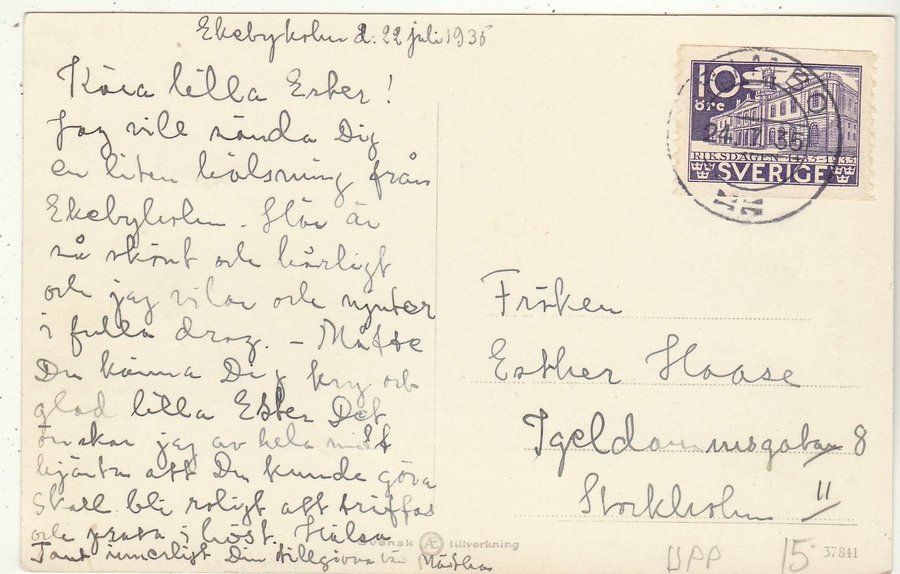 Ekebyholm d. 22 juli 1935
Kära lilla Ester!
Jag vill sända Dig
en liten hälsning från
Ekebyholm. Här är
så skönt och härligt
och jag vilar och njuter
i fulla drag. - Måtte
Du känna Dig kry och
glad lilla Ester Det
önskar jag av hela mitt
hjärta att Du kunde göra
Skall bli roligt att träffas
och prata i höst. Hälsa
Tant innerligt Din tillgivna vän
10
öre
24 7 35
RIKSDAGEN 1435-1935
SVERIGE
Fröken
Esther Haase
Igeldammsgatan 8
Stockholm
Svensk Æ tillverkning
UPP 15 37841